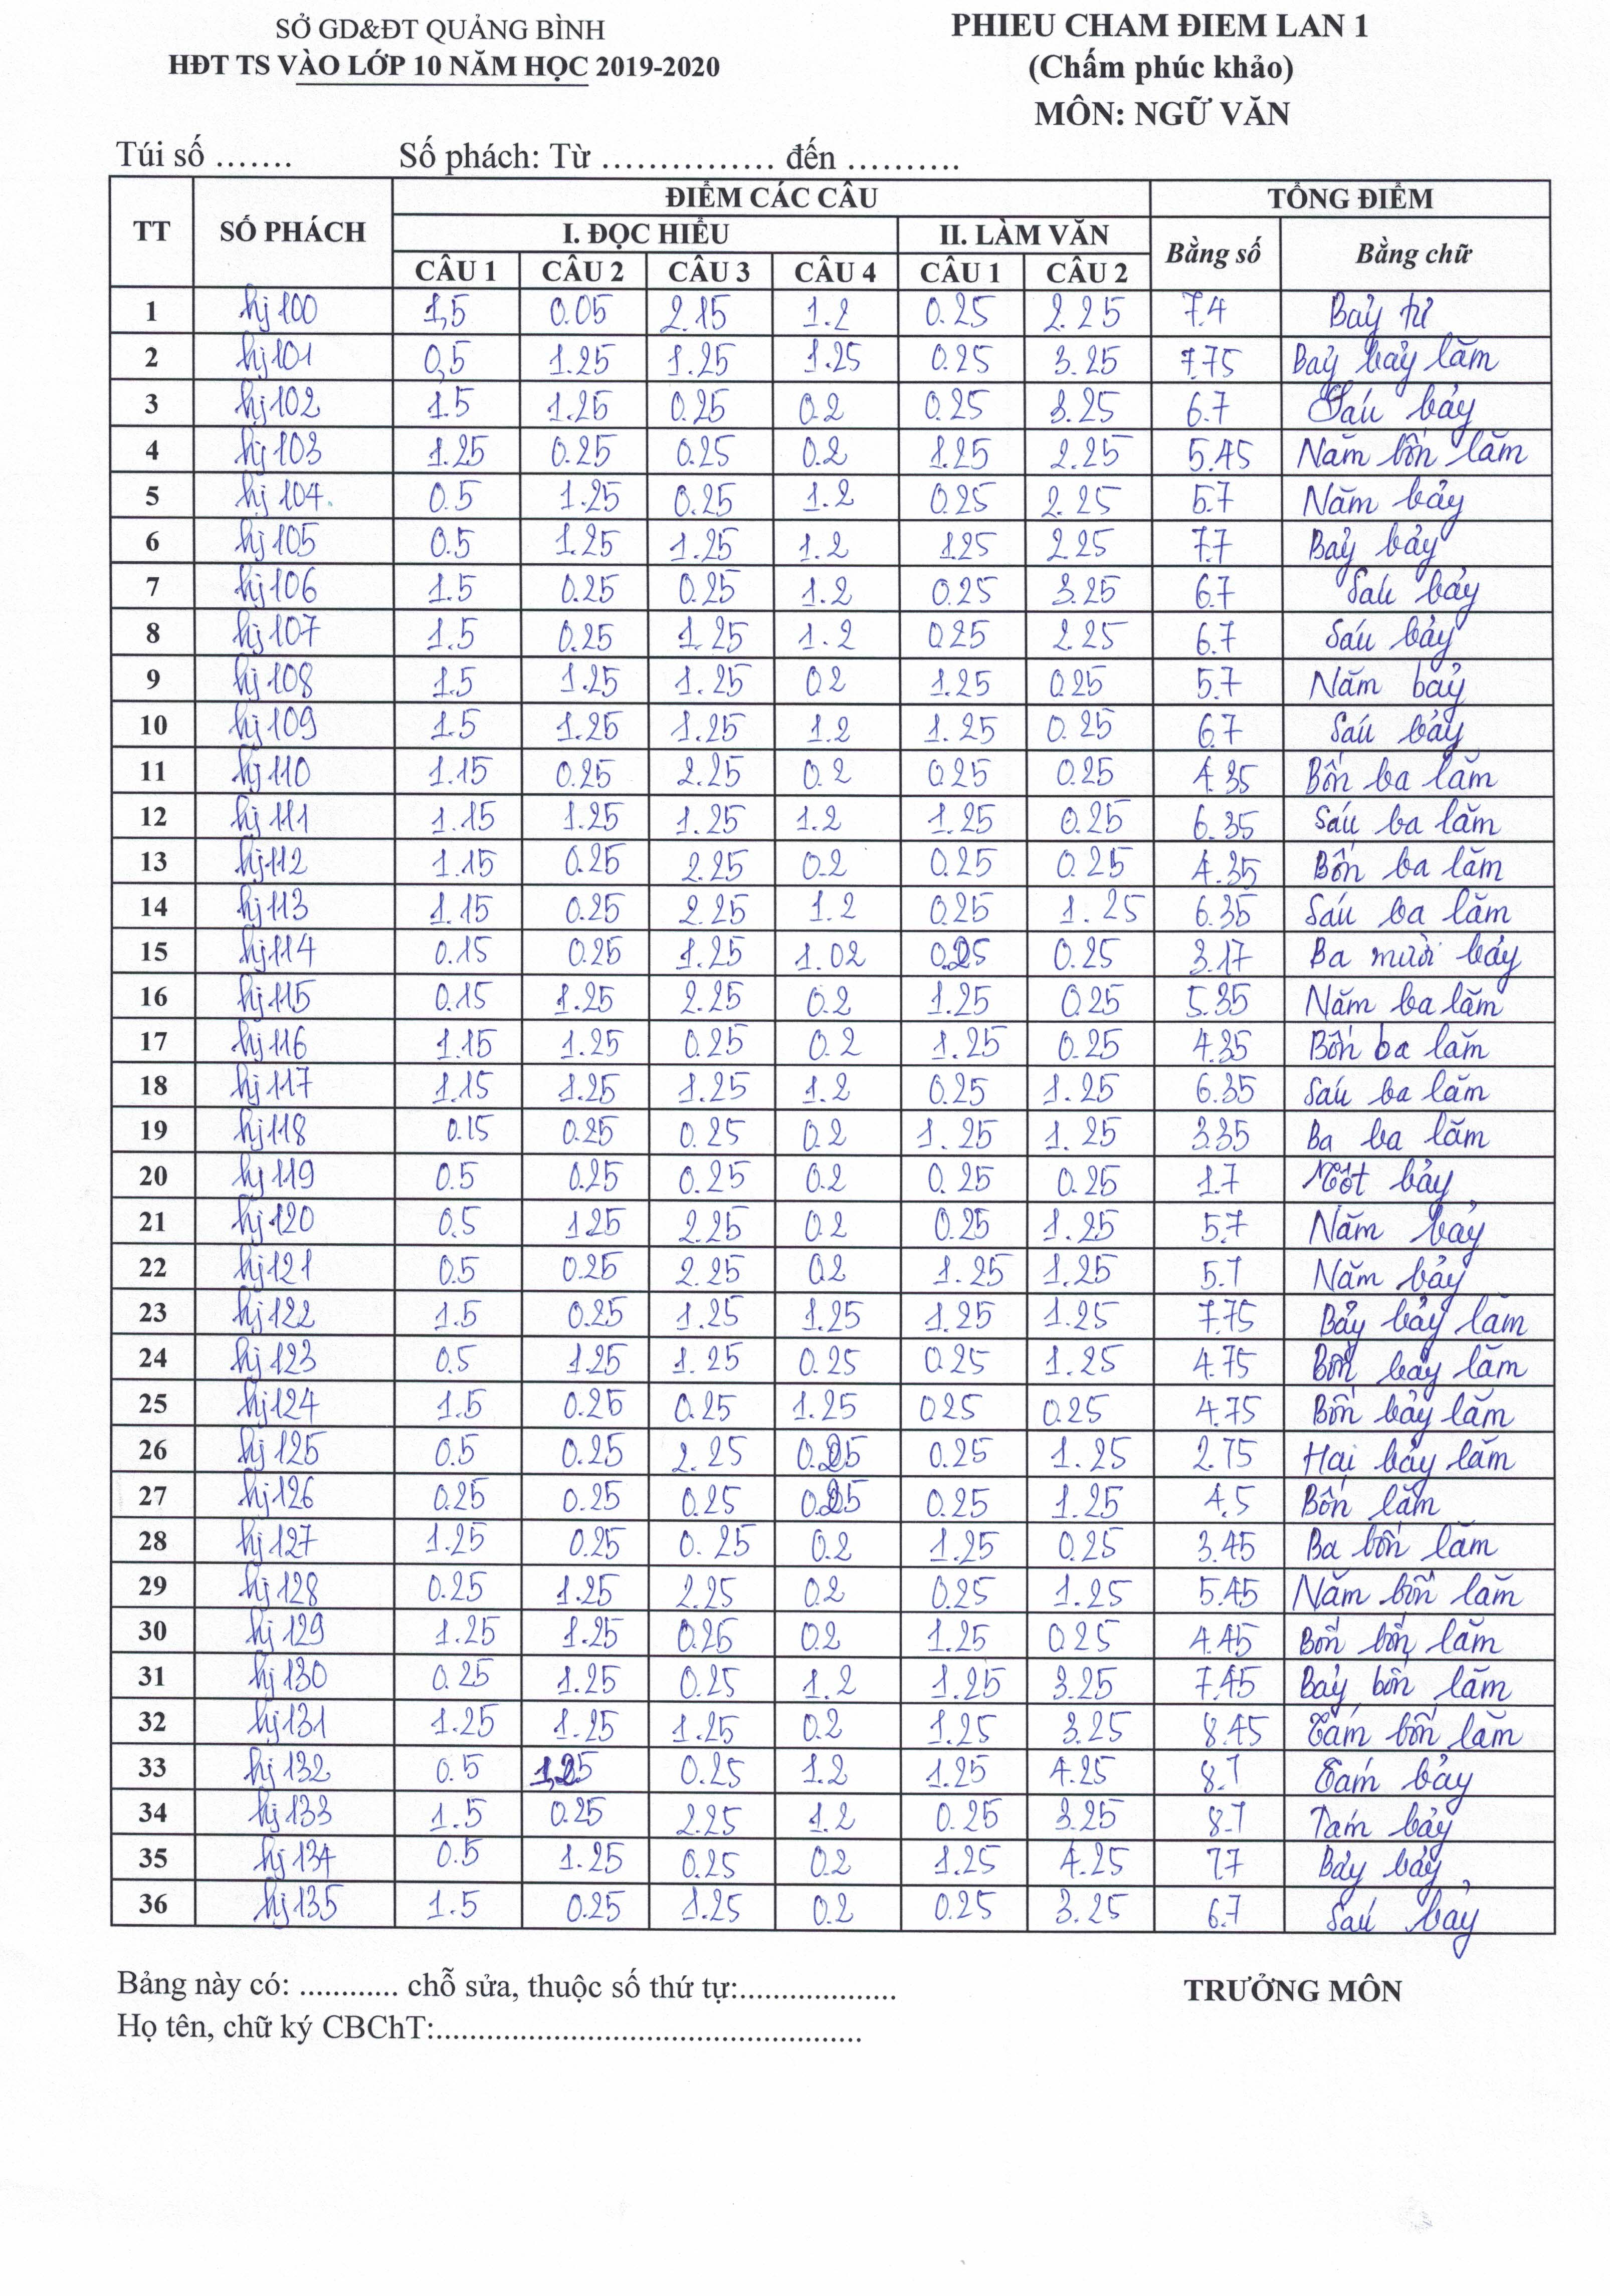 SỞ GD&ĐT QUẢNG BÌNH
HĐT TS VÀO LỚP 10 NĂM HỌC 2019-2020
PHIEU CHAM ĐIEM LAN 1
(Chấm phúc khảo)
MÔN: NGỮ VĂN
Túi số ....... Số phách: Từ ............... đến ..........
TT SỐ PHÁCH ĐIỂM CÁC CÂU TỔNG ĐIỂM
I. ĐỌC HIỂU II. LÀM VĂN Bằng số Bằng chữ
CÂU 1 CÂU 2 CÂU 3 CÂU 4 CÂU 1 CÂU 2
1 hj100 1,5 0.05 2.15 1.2 0.25 2.25 7.4 Bảy tư
2 hj101 0,5 1.25 1.25 1.25 0.25 3.25 7.75 Bảy bảy lăm
3 hj102 1.5 1.25 0.25 0.2 0.25 3.25 6.7 Sáu bảy
4 hj103 1.25 0.25 0.25 0.2 1.25 2.25 5.45 Năm bốn lăm
5 hj104. 0.5 1.25 0.25 1.2 0.25 2.25 5.7 Năm bảy
6 hj105 0.5 1.25 1.25 1.2 1.25 2.25 7.7 Bảy bảy
7 hj106 1.5 0.25 0.25 1.2 0.25 3.25 6.7 Sáu bảy
8 hj107 1.5 0.25 1.25 1.2 0.25 2.25 6.7 Sáu bảy
9 hj108 1.5 1.25 1.25 0.2 1.25 0.25 5.7 Năm bảy
10 hj109 1.5 1.25 1.25 1.2 1.25 0.25 6.7 Sáu bảy
11 hj110 1.15 0.25 2.25 0.2 0.25 0.25 4.35 Bốn ba lăm
12 hj111 1.15 1.25 1.25 1.2 1.25 0.25 6.35 Sáu ba lăm
13 hj112 1.15 0.25 2.25 0.2 0.25 0.25 4.35 Bốn ba lăm
14 hj113 1.15 0.25 2.25 1.2 0.25 1.25 6.35 Sáu ba lăm
15 hj114 0.15 0.25 1.25 1.02 0.25 0.25 3.17 Ba mười bảy
16 hj115 0.15 1.25 2.25 0.2 1.25 0.25 5.35 Năm ba lăm
17 hj116 1.15 1.25 0.25 0.2 1.25 0.25 4.35 Bốn ba lăm
18 hj117 1.15 1.25 1.25 1.2 0.25 1.25 6.35 Sáu ba lăm
19 hj118 0.15 0.25 0.25 0.2 1.25 1.25 3.35 Ba ba lăm
20 hj119 0.5 0.25 0.25 0.2 0.25 0.25 1.7 Một bảy
21 hj120 0.5 1.25 2.25 0.2 0.25 1.25 5.7 Năm bảy
22 hj121 0.5 0.25 2.25 0.2 1.25 1.25 5.7 Năm bảy
23 hj122 1.5 0.25 1.25 1.25 1.25 1.25 7.75 Bảy bảy lăm
24 hj123 0.5 1.25 1.25 0.25 0.25 1.25 4.75 Bốn bảy lăm
25 hj124 1.5 0.25 0.25 1.25 0.25 0.25 4.75 Bốn bảy lăm
26 hj125 0.5 0.25 2.25 0.25 0.25 1.25 2.75 Hai bảy lăm
27 hj126 0.25 0.25 0.25 0.25 0.25 1.25 4.5 Bốn lăm
28 hj127 1.25 0.25 0.25 0.2 1.25 0.25 3.45 Ba bốn lăm
29 hj128 0.25 1.25 2.25 0.2 0.25 1.25 5.45 Năm bốn lăm
30 hj129 1.25 1.25 0.25 0.2 1.25 0.25 4.45 Bốn bốn lăm
31 hj130 0.25 1.25 0.25 1.2 1.25 3.25 7.45 Bảy bốn lăm
32 hj131 1.25 1.25 1.25 0.2 1.25 3.25 8.45 Tám bốn lăm
33 hj132 0.5 1,25 0.25 1.2 1.25 4.25 8.7 Tám bảy
34 hj133 1.5 0.25 2.25 1.2 0.25 3.25 8.7 Tám bảy
35 hj134 0.5 1.25 0.25 0.2 1.25 4.25 7.7 Bảy bảy
36 hj135 1.5 0.25 1.25 0.2 0.25 3.25 6.7 Sáu bảy
Bảng này có: ............ chỗ sửa, thuộc số thứ tự:................... TRƯỞNG MÔN
Họ tên, chữ ký CBChT:....................................................